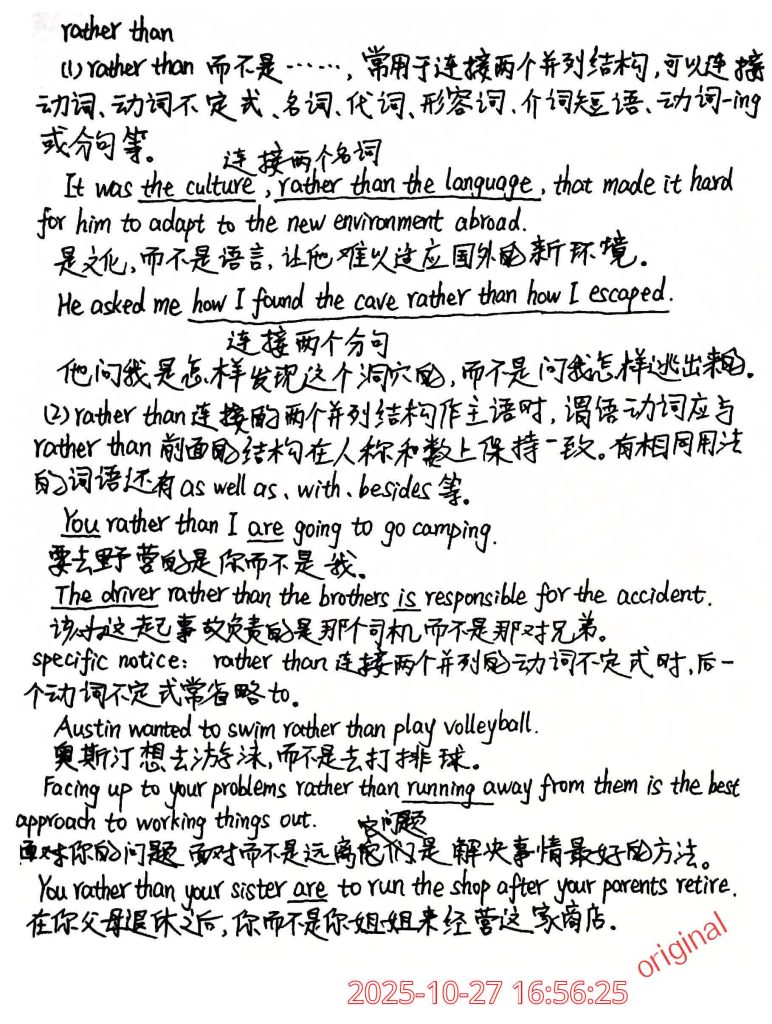 rather than
(1) rather than 而不是……，常用于连接两个并列结构，可以连接
动词、动词不定式、名词、代词、形容词、介词短语、动词-ing
或分句等。
连接两个名词
It was the culture, rather than the language, that made it hard
for him to adapt to the new environment abroad.
是文化，而不是语言，让他难以适应国外的新环境。
He asked me how I found the cave rather than how I escaped.
连接两个分句
他问我是怎样发现这个洞穴的，而不是问我怎样逃出来的。
(2) rather than 连接的两个并列结构作主语时，谓语动词应与
rather than 前面的结构在人称和数上保持一致。有相同用法
的词语还有 as well as、with、besides 等。
You rather than I are going to go camping.
要去野营的是你而不是我。
The driver rather than the brothers is responsible for the accident.
该对这起事故负责的是那个司机而不是那对兄弟。
specific notice： rather than 连接两个并列的动词不定式时，后一
个动词不定式常省略 to。
Austin wanted to swim rather than play volleyball.
奥斯汀想去游泳，而不是去打排球。
Facing up to your problems rather than running away from them is the best
approach to working things out.
问题
面对你的问题 面对而不是远离它们是 解决事情最好的方法。
You rather than your sister are to run the shop after your parents retire.
在你父母退休之后，你而不是你姐姐来经营这家商店。
original
2025-10-27 16:56:25